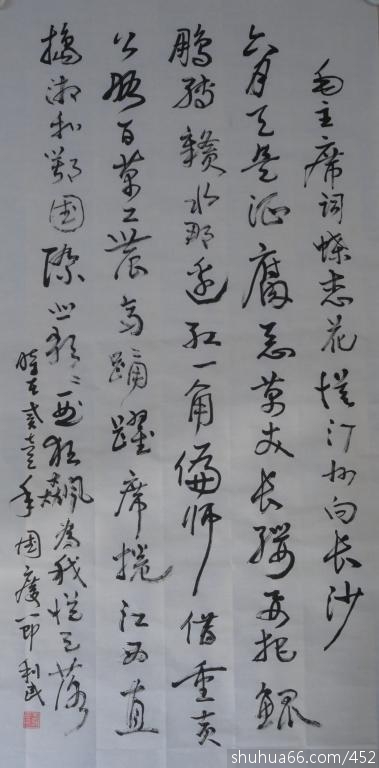 毛主席词蝶恋花從汀州向长沙
六月天兵征腐恶萬丈长缨要把鲲
鹏缚赣水那边红一角偏师借重黄
公略百萬工農齐踊躍席捲江西直
搗湘和鄂国際悲歌歌一曲狂飙为我從天落
時在贰壹年国慶节利民
shuhua66.com/452